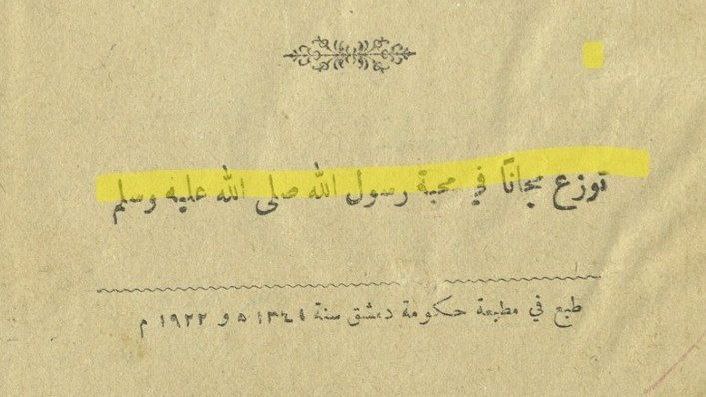 توزع مجانًا في محبة رسول الله صلى الله عليه وسلم
طبع في مطبعة حكومة دمشق سنة ١٣٤١ ه و ١٩٢٢ م